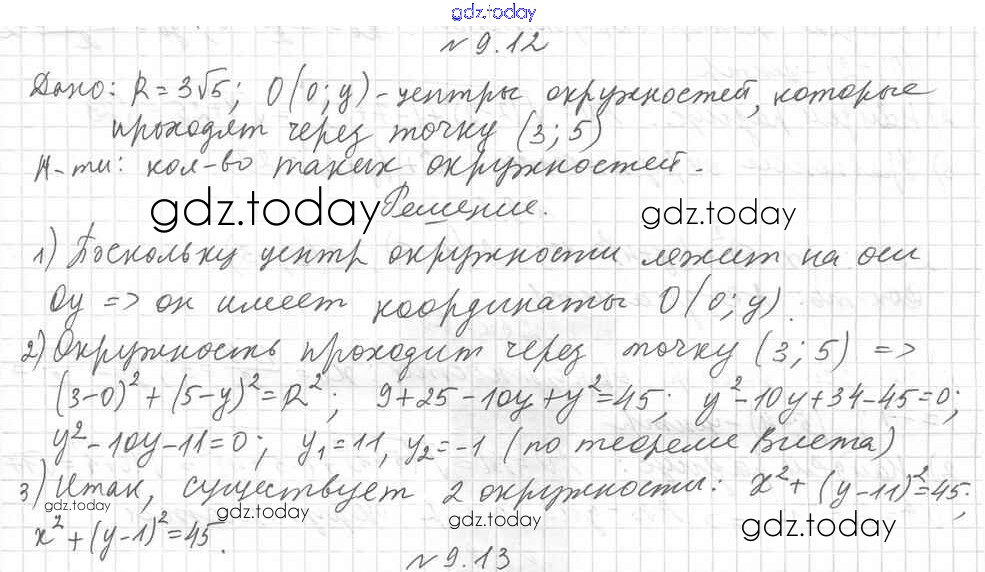 gdz.today
№ 9.12
Дано: R = 3√5; O(0; y) - центры окружностей, которые
проходят через точку (3; 5)
Н-ти: кол-во таких окружностей.
gdz.today Решение. gdz.today
1) Поскольку центр окружности лежит на оси
Oy => он имеет координаты O(0; y).
2) Окружность проходит через точку (3; 5) =>
(3-0)² + (5-y)² = R²; 9+25-10y+y²=45; y²-10y+34-45=0;
y²-10y-11=0; y₁=11, y₂=-1 (по теореме Виета)
3) Итак, существует 2 окружности: x²+(y-11)²=45;
gdz.today gdz.today gdz.today gdz.today
x²+(y-1)²=45.
№ 9.13